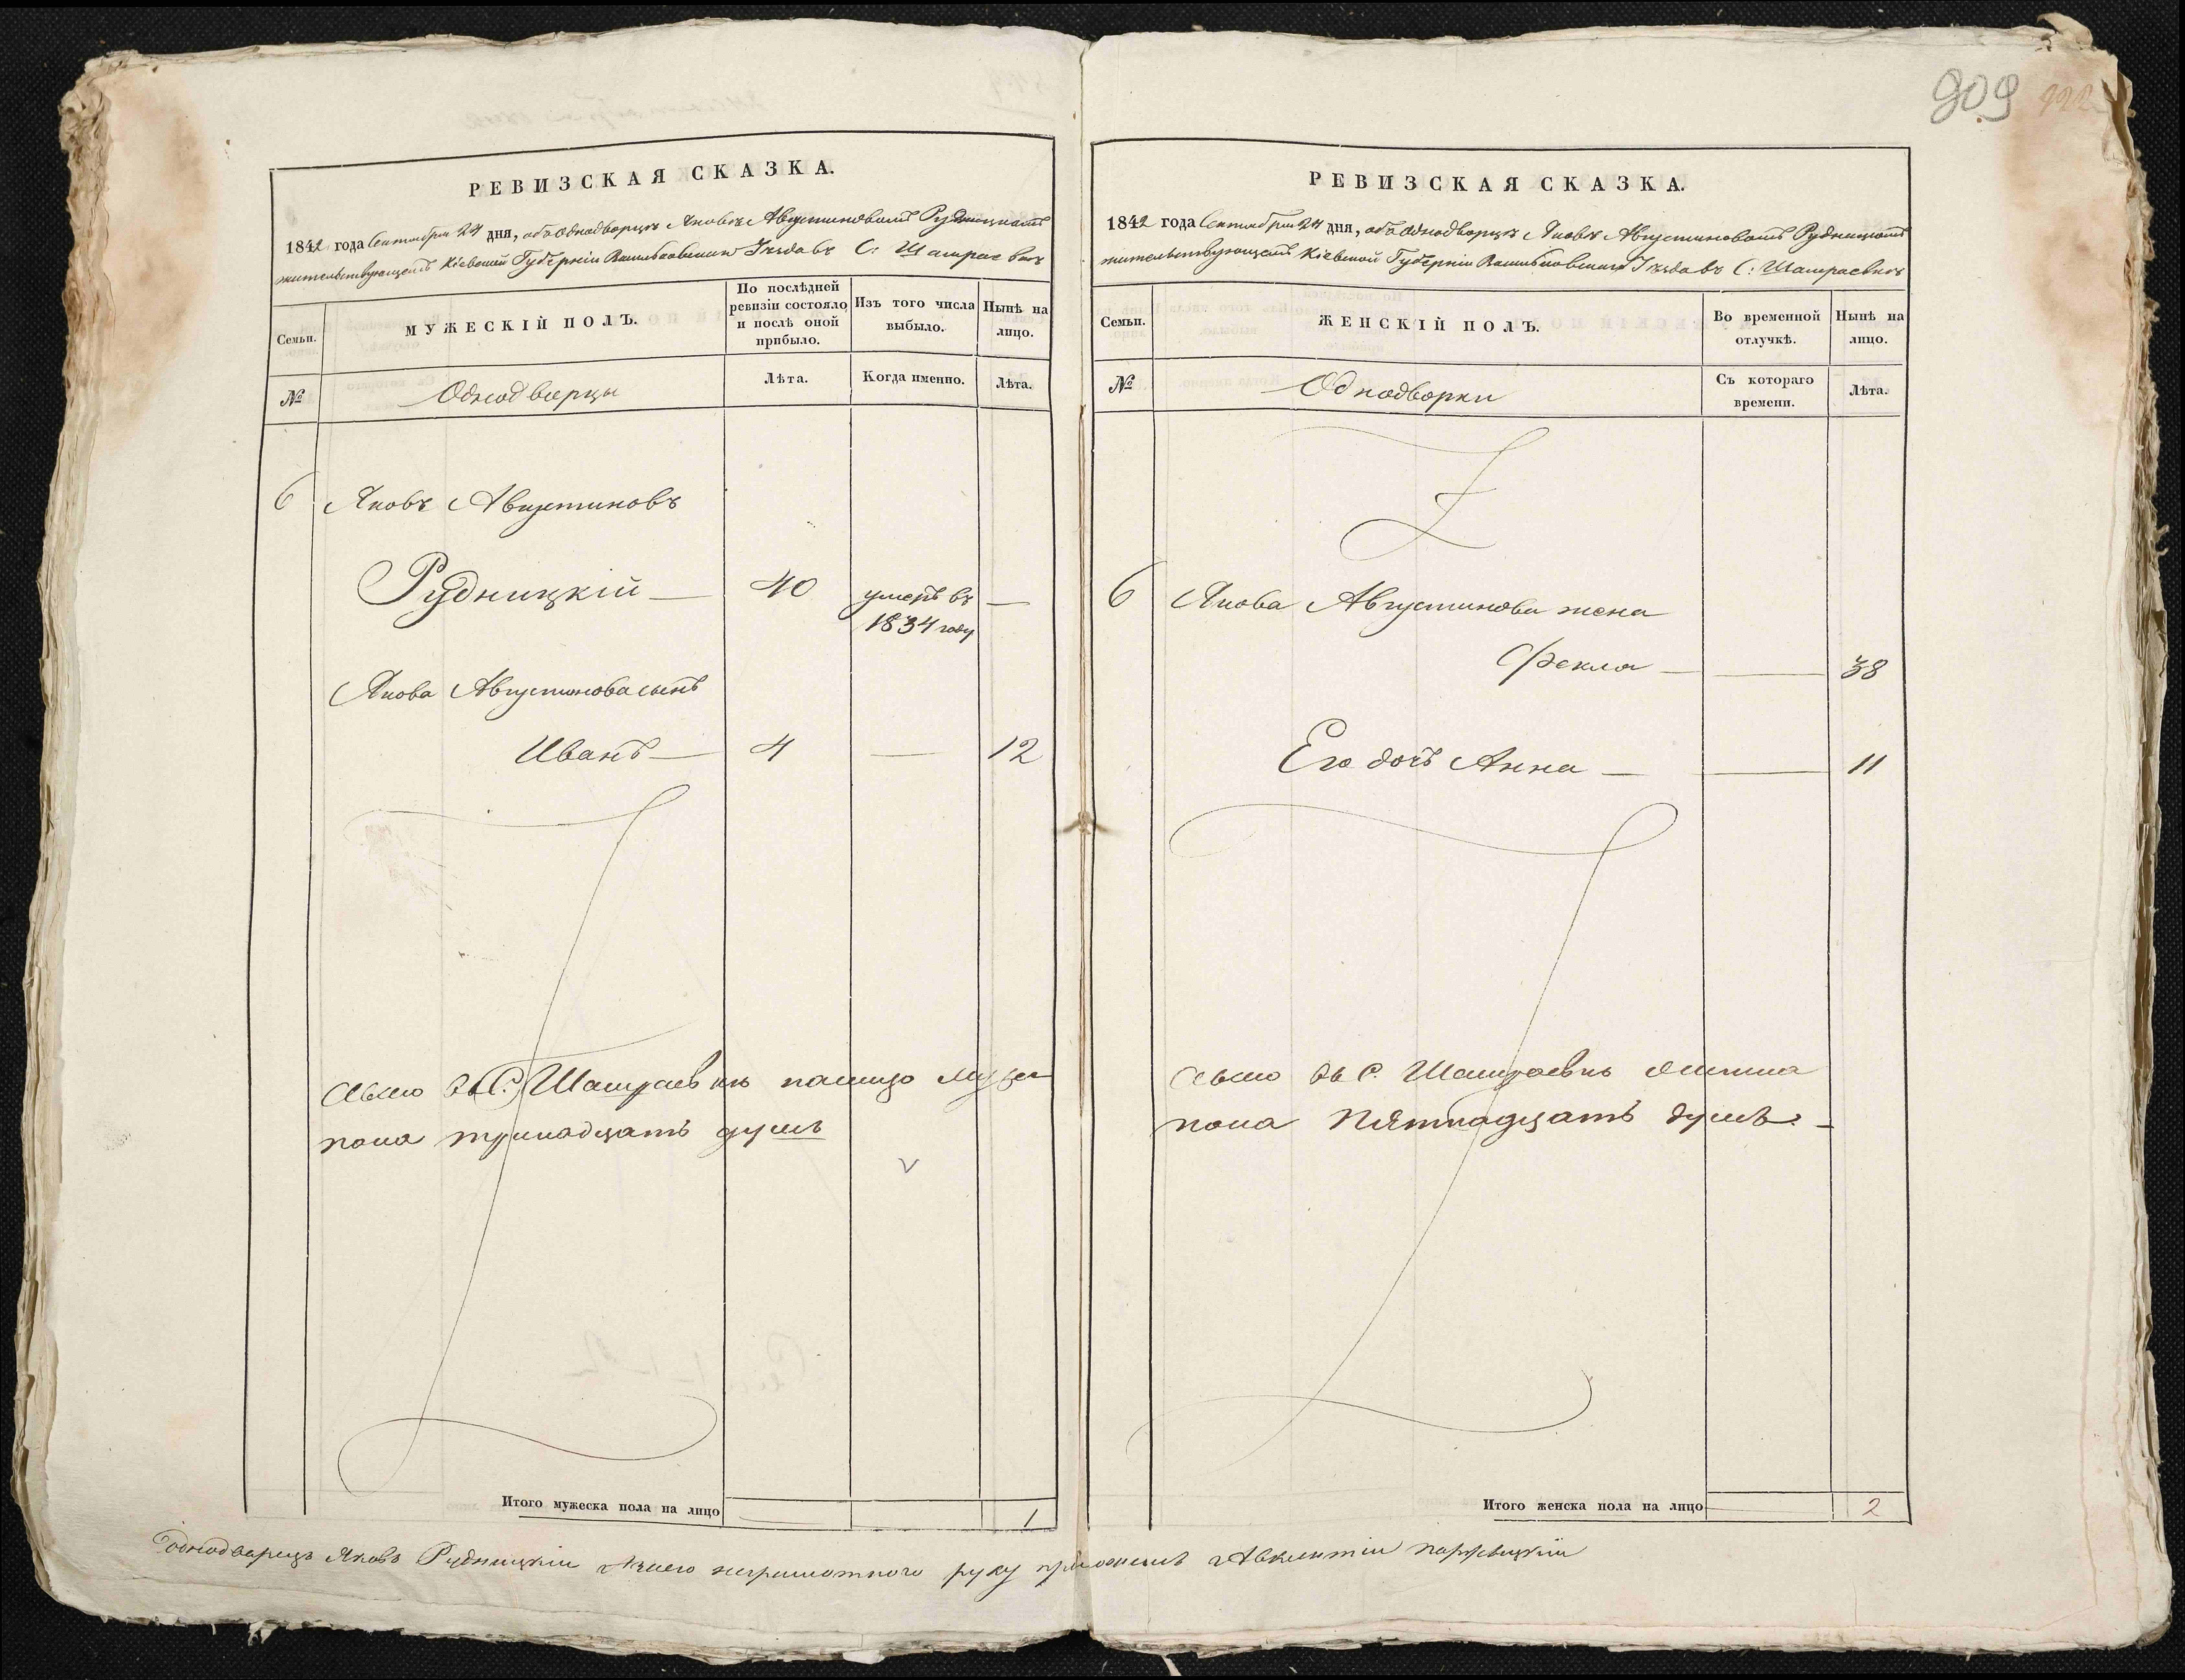 809
РЕВИЗСКАЯ СКАЗКА.
1842 года Сентября 24 дня, объ Однодворцѣ Яковѣ Августиновомъ Рудницкомъ
жительствующемъ Кіевской Губерніи Васильковскаго Уѣзда въ С: Шамраевкѣ
Семьи.
МУЖЕСКІЙ ПОЛЪ.
По послѣдней ревизіи состояло и послѣ оной прибыло.
Изъ того числа выбыло.
Нынѣ на лицо.
№
Однодворцы
Лѣта.
Когда именно.
Лѣта.
6 Яковъ Августиновъ
Рудницкій — 40 умеръ въ —
1834 году
Якова Августинова сынъ
Иванъ — 4 — 12
въ С: Шамраевкѣ налицо
пола тринадцать душъ
Итого мужеска пола на лицо 1
РЕВИЗСКАЯ СКАЗКА.
1842 года Сентября 24 дня, объ Однодворцѣ Яковѣ Августиновомъ Рудницкомъ
жительствующемъ Кіевской Губерніи Васильковскаго Уѣзда въ С: Шамраевкѣ
Семьи.
ЖЕНСКІЙ ПОЛЪ.
Во временной отлучкѣ.
Нынѣ на лицо.
№
Однодворки
Съ котораго времени.
Лѣта.
6 Якова Августинова жена
Фекла — — 38
Его дочь Анна — — 11
въ С. Шамраевкѣ
пола пятнадцать душъ. —
Итого женска пола на лицо 2
однодварецъ Яковъ Рудницкій неграмотного руку приложилъ